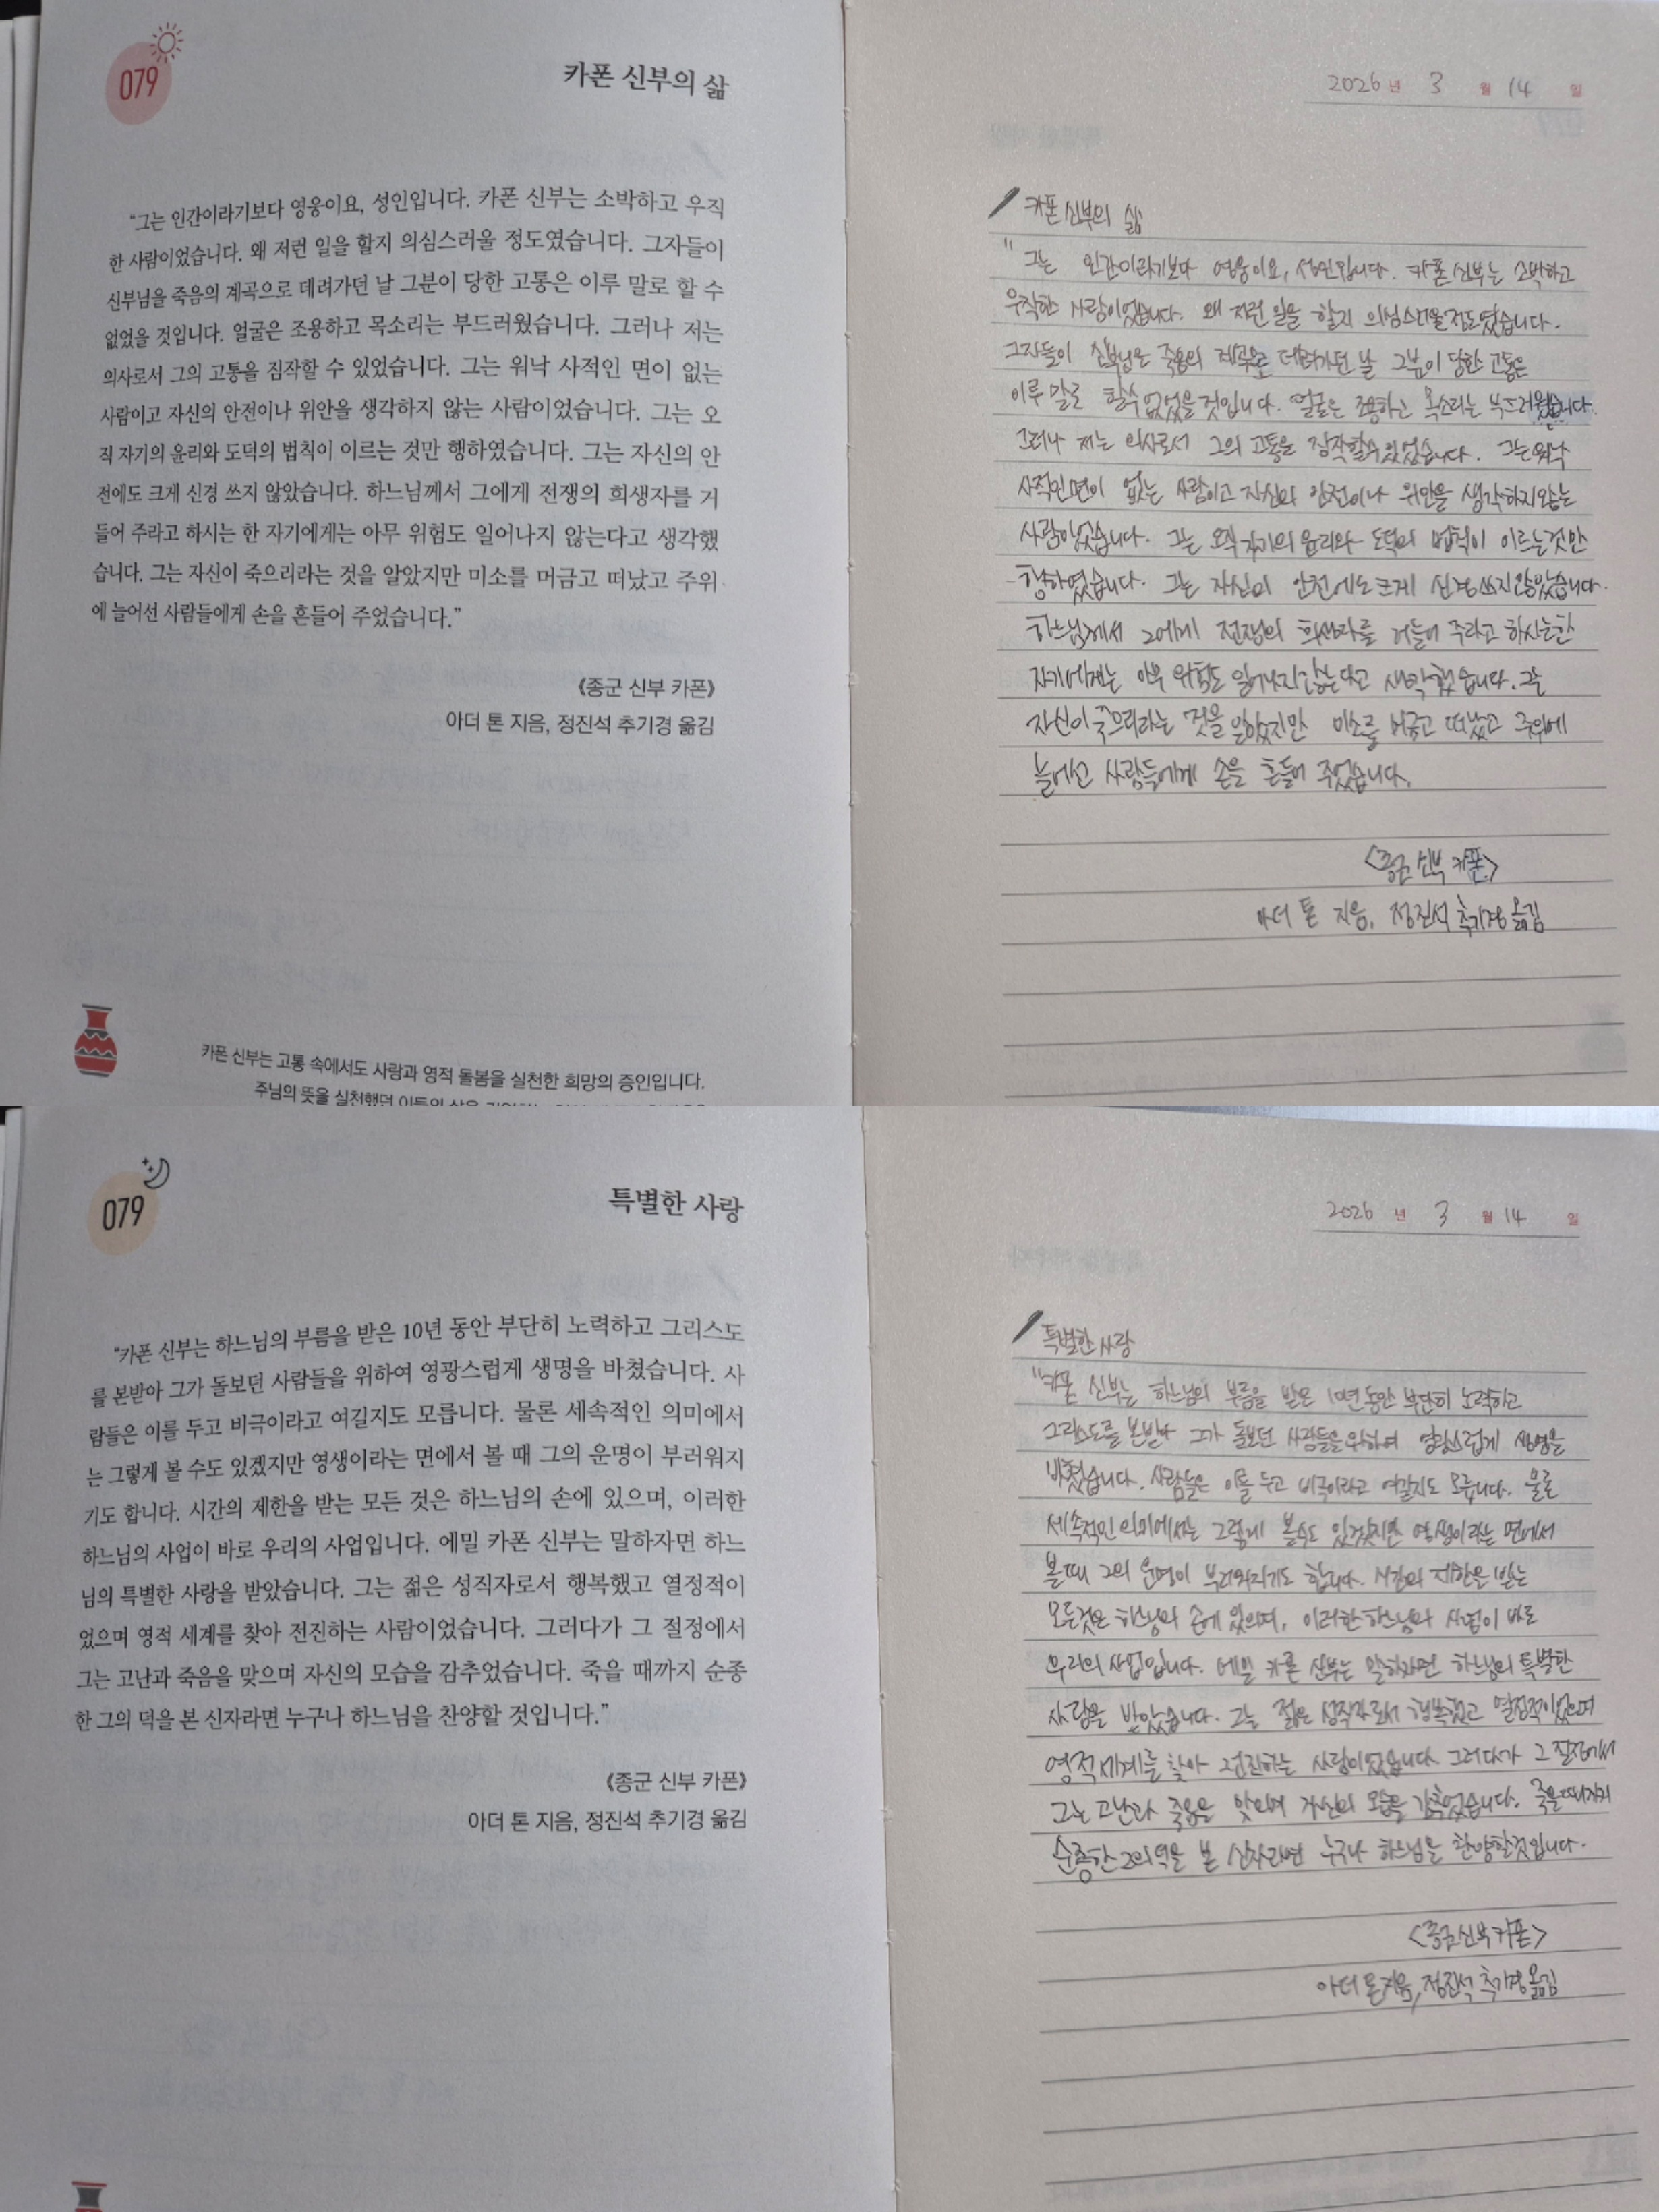 079
카폰 신부의 삶
“그는 인간이라기보다 영웅이요, 성인입니다. 카폰 신부는 소박하고 우직
한 사람이었습니다. 왜 저런 일을 할지 의심스러울 정도였습니다. 그자들이
신부님을 죽음의 계곡으로 데려가던 날 그분이 당한 고통은 이루 말로 할 수
없었을 것입니다. 얼굴은 조용하고 목소리는 부드러웠습니다. 그러나 저는
의사로서 그의 고통을 짐작할 수 있었습니다. 그는 워낙 사적인 면이 없는
사람이고 자신의 안전이나 위안을 생각하지 않는 사람이었습니다. 그는 오
직 자기의 윤리와 도덕의 법칙이 이르는 것만 행하였습니다. 그는 자신의 안
전에도 크게 신경 쓰지 않았습니다. 하느님께서 그에게 전쟁의 희생자를 거
들어 주라고 하시는 한 자기에게는 아무 위험도 일어나지 않는다고 생각했
습니다. 그는 자신이 죽으리라는 것을 알았지만 미소를 머금고 떠났고 주위
에 늘어선 사람들에게 손을 흔들어 주었습니다.”
《종군 신부 카폰》
아더 톤 지음, 정진석 추기경 옮김
카폰 신부는 고통 속에서도 사랑과 영적 돌봄을 실천한 희망의 증인입니다.
주님의 뜻을 실천했던 이들의 삶을
2026년 3월 14일
카폰 신부의 삶
"그는 인간이라기보다 영웅이요, 성인입니다. 카폰 신부는 소박하고
우직한 사람이었습니다. 왜 저런 일을 할지 의심스러울 정도였습니다.
그자들이 신부님을 죽음의 계곡으로 데려가던 날 그분이 당한 고통은
이루 말로 할수 없었을 것입니다. 얼굴은 조용하고 목소리는 부드러웠습니다.
그러나 저는 의사로서 그의 고통을 짐작할수 있었습니다. 그는 워낙
사적인 면이 없는 사람이고 자신의 안전이나 위안을 생각하지 않는
사람이었습니다. 그는 오직 자기의 윤리와 도덕의 법칙이 이르는것만
행하였습니다. 그는 자신의 안전에도 크게 신경 쓰지 않았습니다.
하느님께서 그에게 전쟁의 희생자를 거들어 주라고 하시는한
자기에게는 아무 위험도 일어나지 않는다고 생각했습니다. 그는
자신이 죽으리라는 것을 알았지만 미소를 머금고 떠났고 주위에
늘어선 사람들에게 손을 흔들어 주었습니다.
<종군 신부 카폰>
아더 톤 지음, 정진석 추기경 옮김
079
특별한 사랑
“카폰 신부는 하느님의 부름을 받은 10년 동안 부단히 노력하고 그리스도
를 본받아 그가 돌보던 사람들을 위하여 영광스럽게 생명을 바쳤습니다. 사
람들은 이를 두고 비극이라고 여길지도 모릅니다. 물론 세속적인 의미에서
는 그렇게 볼 수도 있겠지만 영생이라는 면에서 볼 때 그의 운명이 부러워지
기도 합니다. 시간의 제한을 받는 모든 것은 하느님의 손에 있으며, 이러한
하느님의 사업이 바로 우리의 사업입니다. 에밀 카폰 신부는 말하자면 하느
님의 특별한 사랑을 받았습니다. 그는 젊은 성직자로서 행복했고 열정적이
었으며 영적 세계를 찾아 전진하는 사람이었습니다. 그러다가 그 절정에서
그는 고난과 죽음을 맞으며 자신의 모습을 감추었습니다. 죽을 때까지 순종
한 그의 덕을 본 신자라면 누구나 하느님을 찬양할 것입니다.”
《종군 신부 카폰》
아더 톤 지음, 정진석 추기경 옮김
2026년 3월 14일
특별한 사랑
"카폰 신부는 하느님의 부름을 받은 10년 동안 부단히 노력하고
그리스도를 본받아 그가 돌보던 사람들을 위하여 영광스럽게 생명을
바쳤습니다. 사람들은 이를 두고 비극이라고 여길지도 모릅니다. 물론
세속적인 의미에서는 그렇게 볼수도 있겠지만 영생이라는 면에서
볼때 그의 운명이 부러워지기도 합니다. 시간의 제한을 받는
모든것은 하느님의 손에 있으며, 이러한 하느님의 사업이 바로
우리의 사업입니다. 에밀 카폰 신부는 말하자면 하느님의 특별한
사랑을 받았습니다. 그는 젊은 성직자로서 행복했고 열정적이었으며
영적 세계를 찾아 전진하는 사람이었습니다. 그러다가 그 절정에서
그는 고난과 죽음을 맞으며 자신의 모습을 감추었습니다. 죽을때까지
순종한 그의 덕을 본 신자라면 누구나 하느님을 찬양할것입니다.
<종군 신부 카폰>
아더 톤 지음, 정진석 추기경 옮김